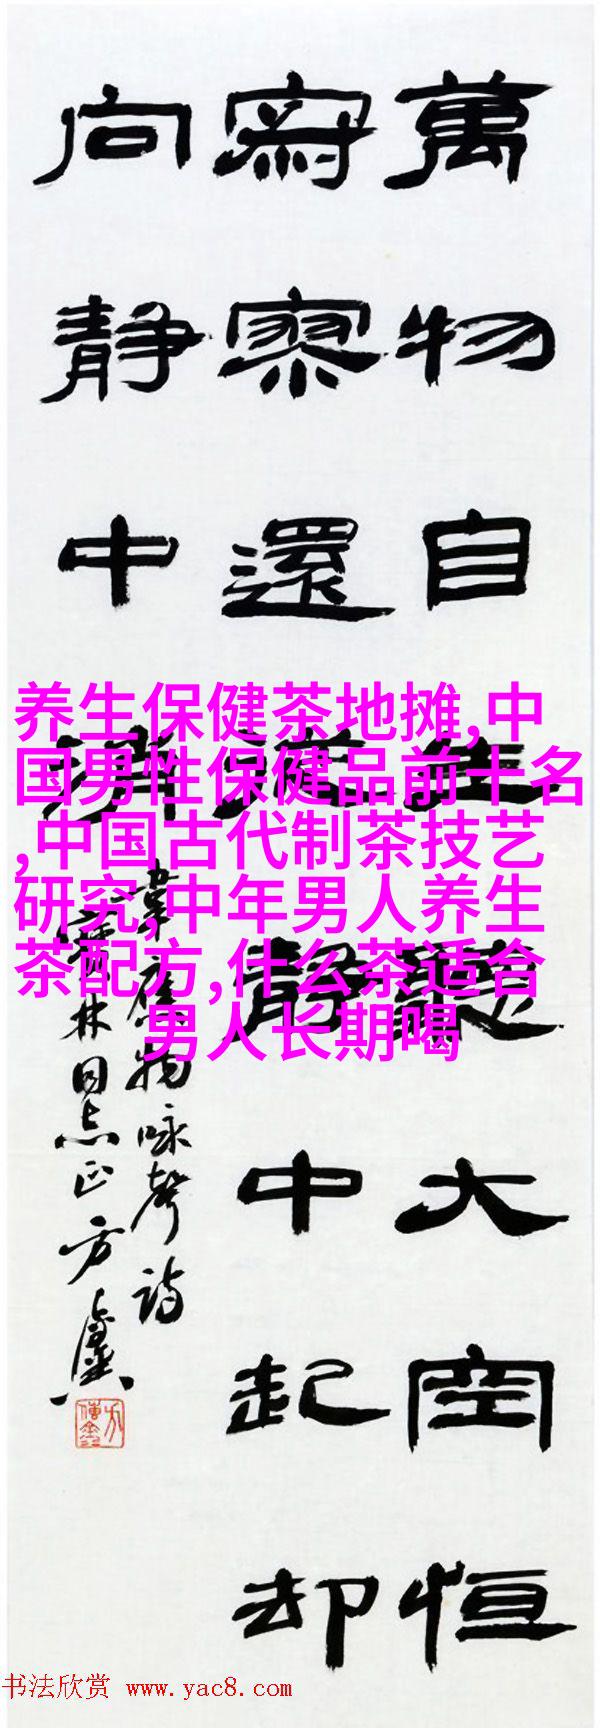 萬物自生聽大空恒
寂寥還從静中起却
向静中消
韋應物咏聲詩
林同志正方
养生保健茶地摊,中
国男性保健品前十名
,中国古代制茶技艺
研究,中年男人养生
茶配方,什么茶适合
男人长期喝
书法欣赏 www.yac8.com